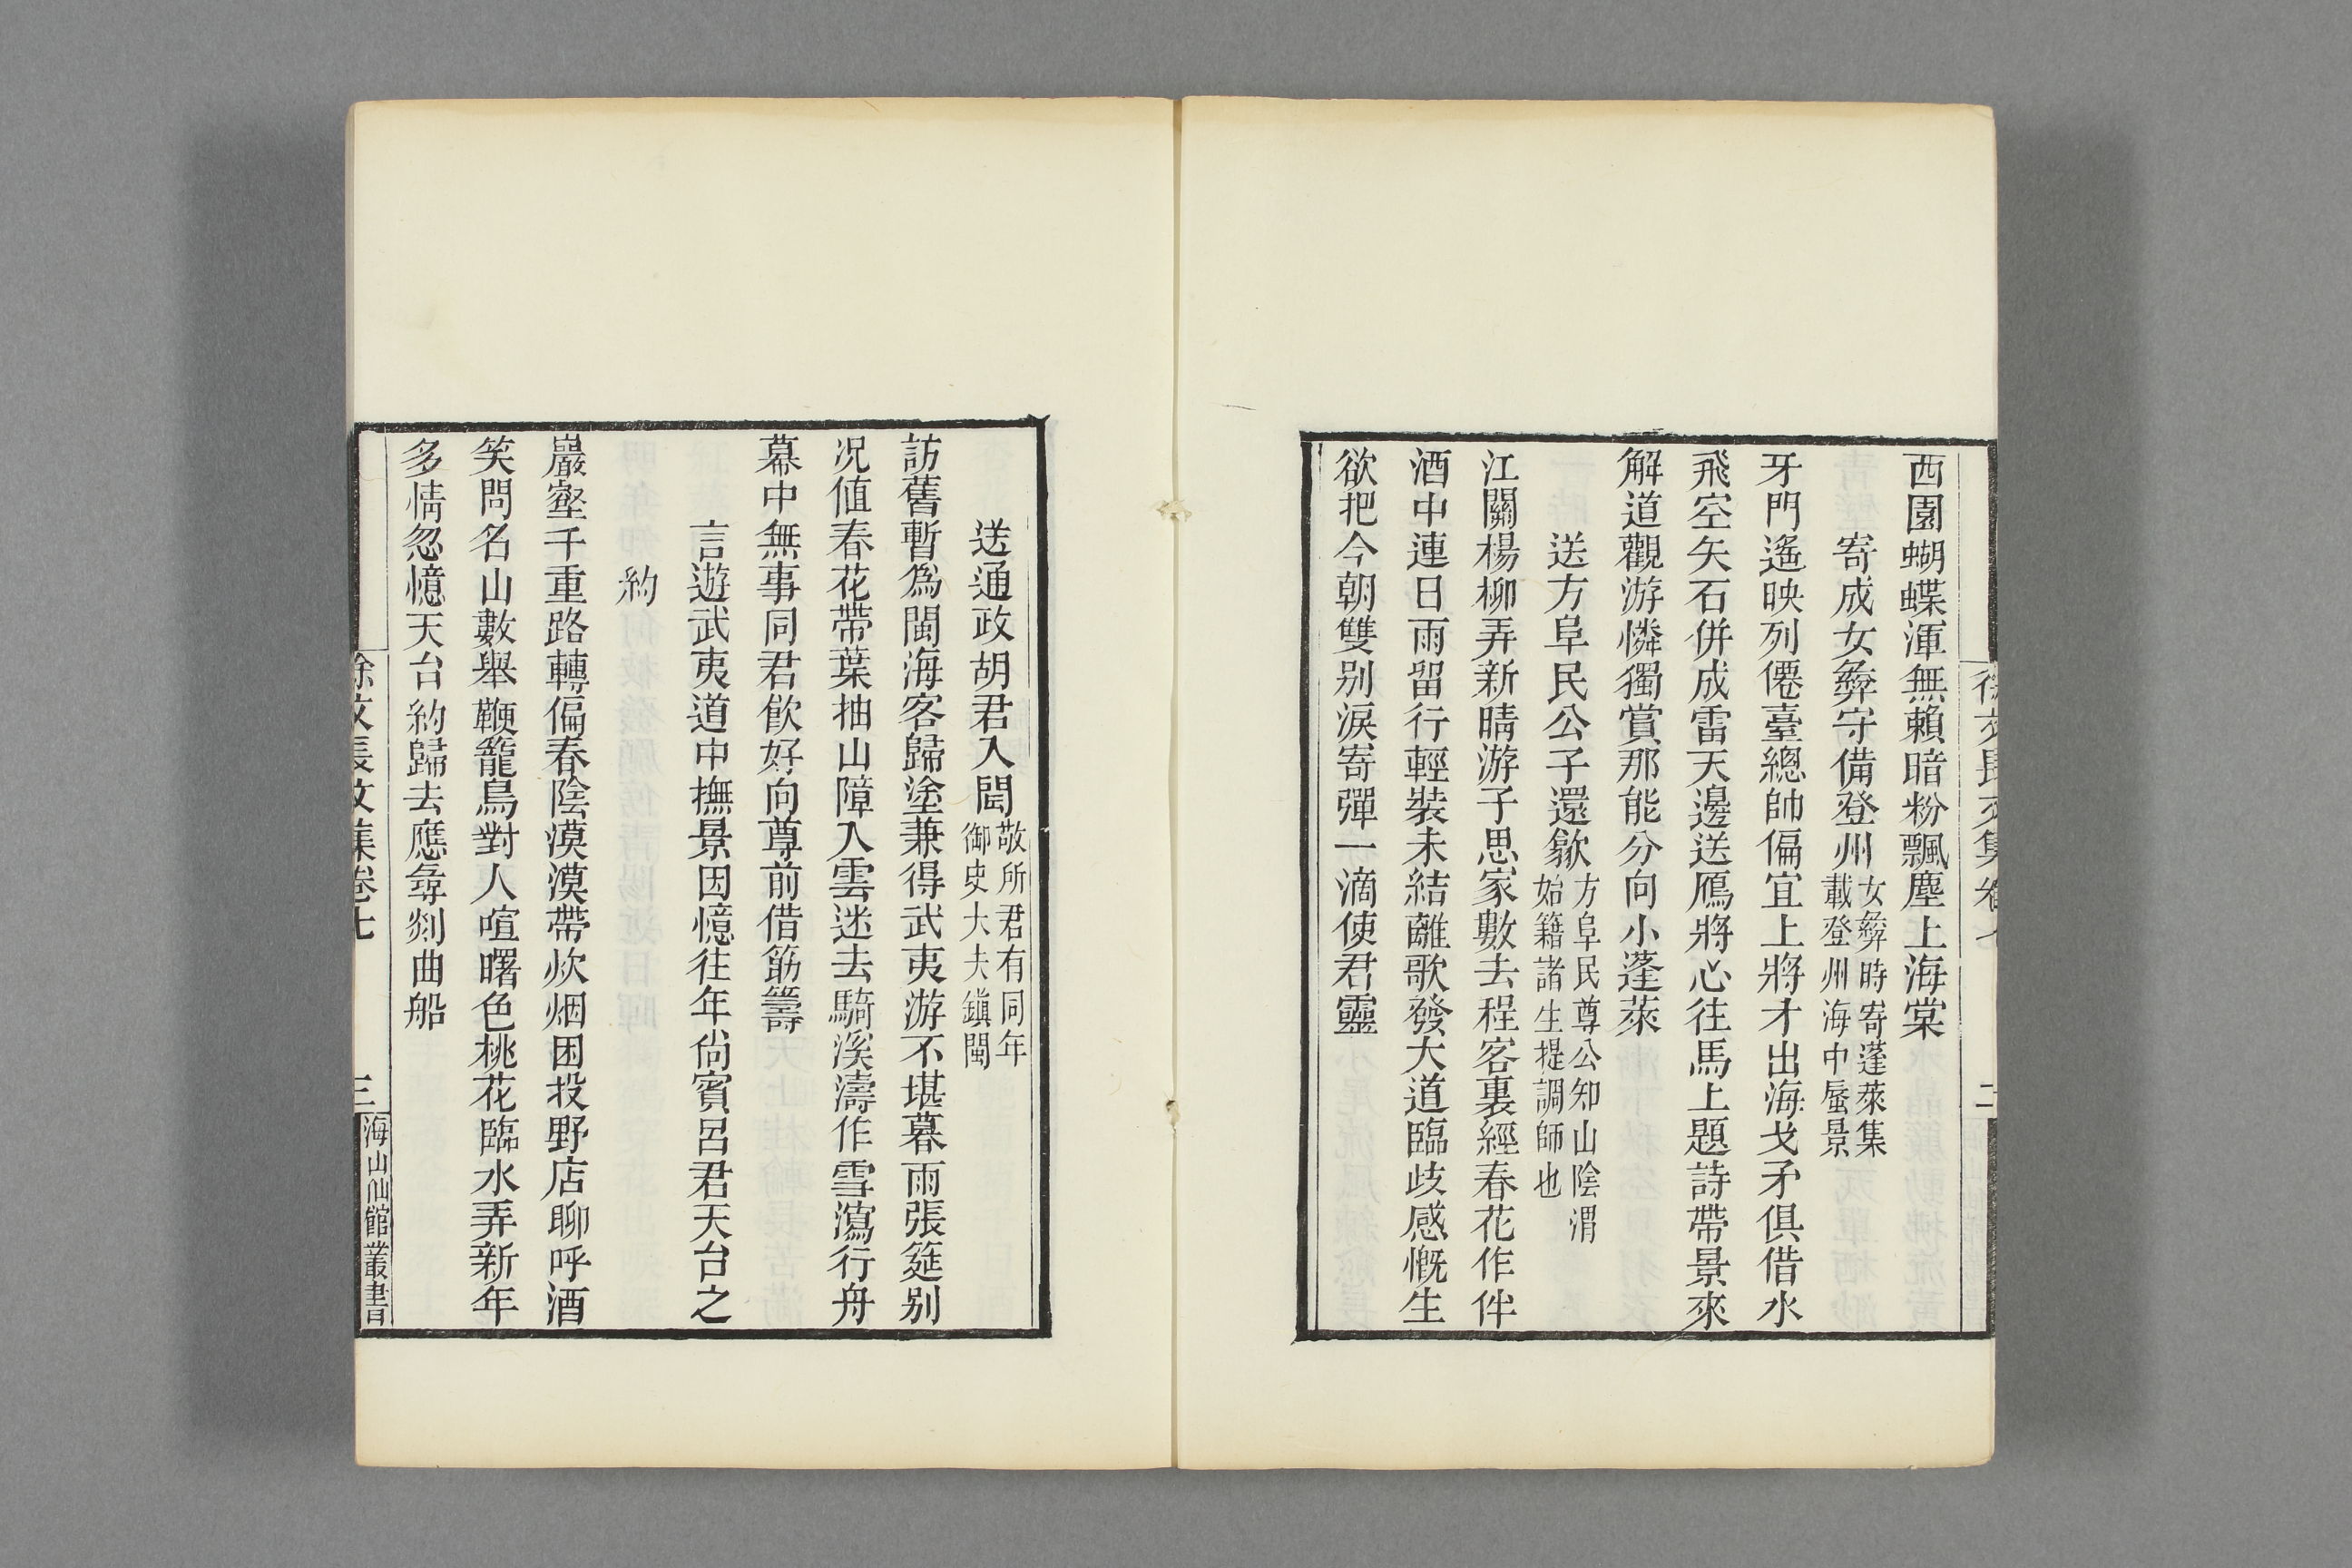 西園蝴蝶渾無賴暗粉飄塵上海棠
寄成女彝守備登州女彝時寄蓬萊集
載登州海中蜃景
牙門遙映列僊臺總帥偏宜上將才出海戈矛俱借水
飛空矢石併成雷天邊送鴈將心往馬上題詩帶景來
解道觀游憐獨賞那能分向小蓬萊
送方阜民公子還歙方阜民尊公知山陰渭
始籍諸生提調師也
江關楊柳弄新晴游子思家數去程客裏經春花作伴
酒中連日雨留行輕裝未結離歌發大道臨歧感慨生
欲把今朝雙別淚寄彈一滴使君靈
送通政胡君入閩敬所君有同年
御史大夫鎮閩
訪舊暫爲閩海客歸塗兼得武夷游不堪暮雨張筵别
况値春花帶葉抽山障入雲迷去騎溪濤作雪瀉行舟
幕中無事同君飲好向尊前借筯籌
言遊武夷道中撫景因憶往年尚賓呂君天台之
約
巖壑千重路轉偏春陰漠漠帶炊烟困投野店聊呼酒
笑問名山數舉鞭籠鳥對人喧曙色桃花臨水弄新年
多情忽憶天台約歸去應尋剡曲船
徐文長文集卷七
三
海山仙館叢書